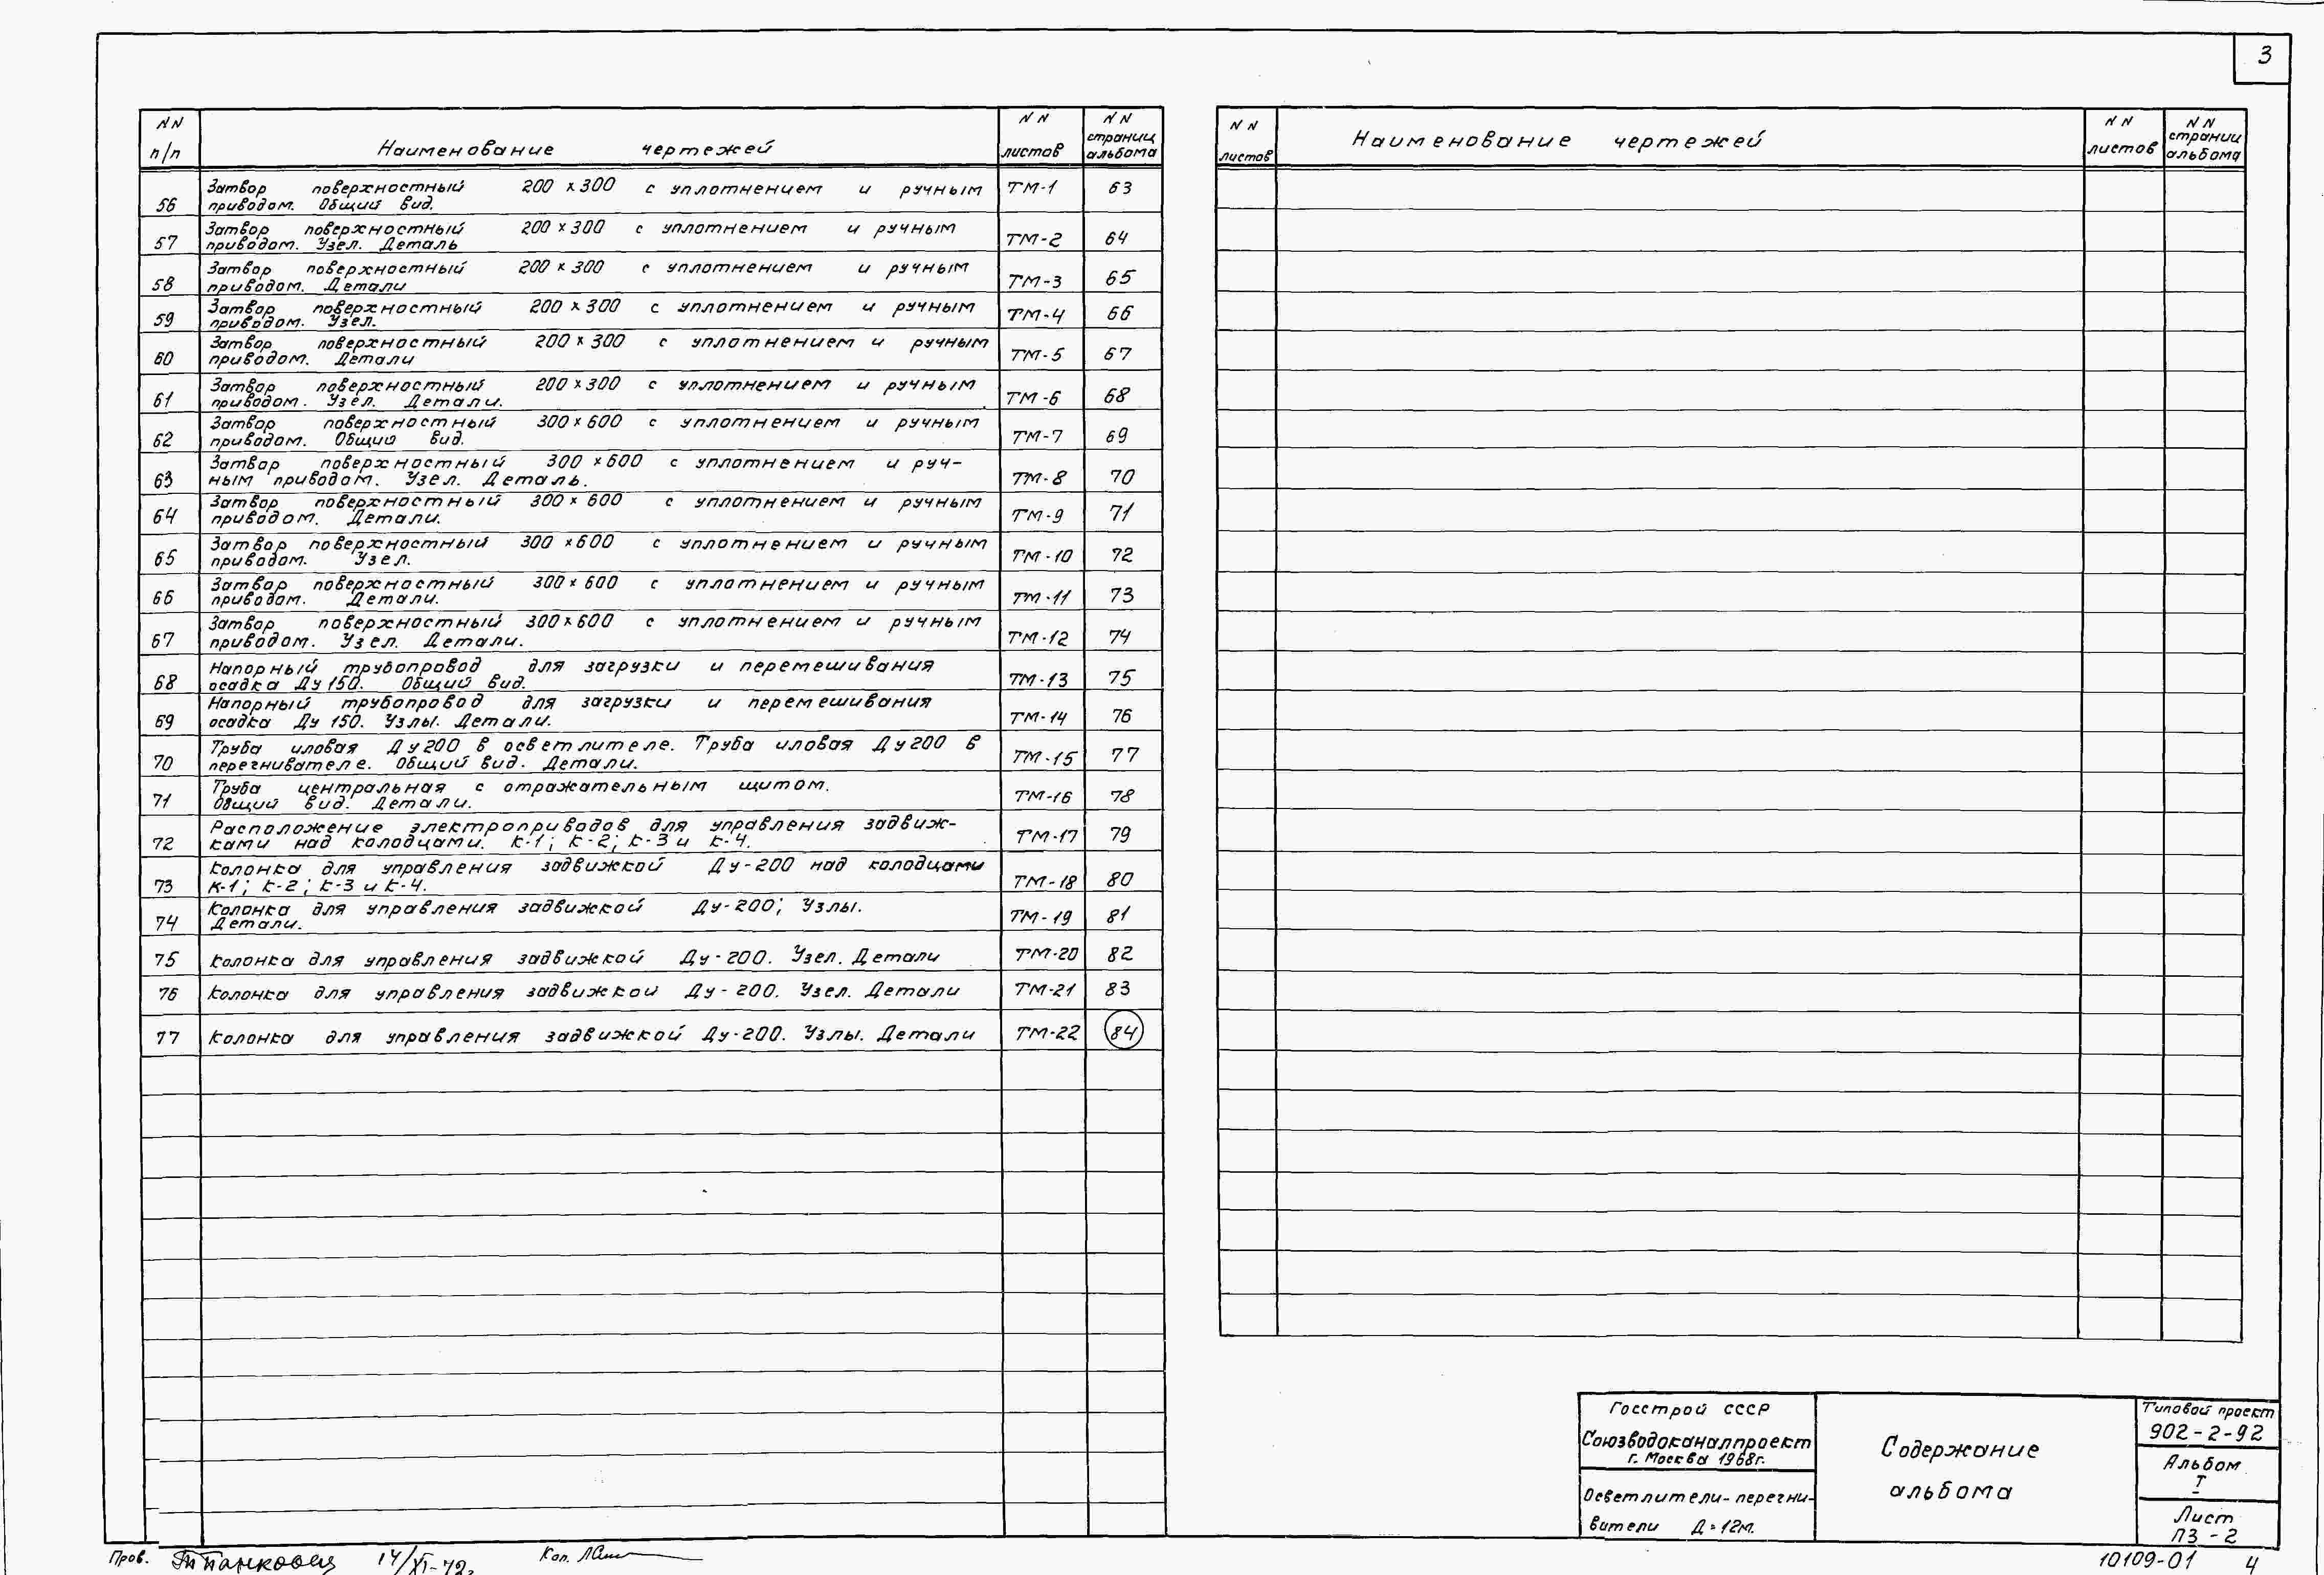 3
NN п/п Наименование чертежей NN листов NN страниц альбома
56 Затвор поверхностный 200 х 300 с уплотнением и ручным ТМ-1 63
приводом. Общий вид.
57 Затвор поверхностный 200 х 300 с уплотнением и ручным ТМ-2 64
приводом. Узел. Деталь
58 Затвор поверхностный 200 х 300 с уплотнением и ручным ТМ-3 65
приводом. Детали
59 Затвор поверхностный 200 х 300 с уплотнением и ручным ТМ-4 66
приводом. Узел.
60 Затвор поверхностный 200 х 300 с уплотнением и ручным ТМ-5 67
приводом. Детали
61 Затвор поверхностный 200 х 300 с уплотнением и ручным ТМ-6 68
приводом. Узел. Детали.
62 Затвор поверхностный 300 х 600 с уплотнением и ручным ТМ-7 69
приводом. Общий вид.
63 Затвор поверхностный 300 х 600 с уплотнением и руч- ТМ-8 70
ным приводом. Узел. Деталь.
64 Затвор поверхностный 300 х 600 с уплотнением и ручным ТМ-9 71
приводом. Детали.
65 Затвор поверхностный 300 х 600 с уплотнением и ручным ТМ-10 72
приводом. Узел.
66 Затвор поверхностный 300 х 600 с уплотнением и ручным ТМ-11 73
приводом. Детали.
67 Затвор поверхностный 300 х 600 с уплотнением и ручным ТМ-12 74
приводом. Узел. Детали.
68 Напорный трубопровод для загрузки и перемешивания ТМ-13 75
осадка Ду 150. Общий вид.
69 Напорный трубопровод для загрузки и перемешивания ТМ-14 76
осадка Ду 150. Узлы. Детали.
70 Труба иловая Ду 200 в осветлителе. Труба иловая Ду 200 в ТМ-15 77
перегнивателе. Общий вид. Детали.
71 Труба центральная с отражательным щитом. ТМ-16 78
Общий вид. Детали.
72 Расположение электроприводов для управления задвиж- ТМ-17 79
ками над колодцами. К-1; К-2; К-3 и К-4.
73 Колонка для управления задвижкой Ду-200 над колодцами ТМ-18 80
К-1; К-2; К-3 и К-4.
74 Колонка для управления задвижкой Ду-200; Узлы. ТМ-19 81
Детали.
75 Колонка для управления задвижкой Ду-200. Узел. Детали ТМ-20 82
76 Колонка для управления задвижкой Ду-200. Узел. Детали ТМ-21 83
77 Колонка для управления задвижкой Ду-200. Узлы. Детали ТМ-22 84
NN листов Наименование чертежей NN листов NN страниц альбома
Госстрой СССР
Союзводоканалпроект
г. Москва 1968г.
Осветлители-перегни-
ватели Д=12м.
Содержание
альбома
Типовой проект
902-2-92
Альбом
I
Лист
ПЗ-2
Пров. 14/XI-72. Коп.
10109-01 4